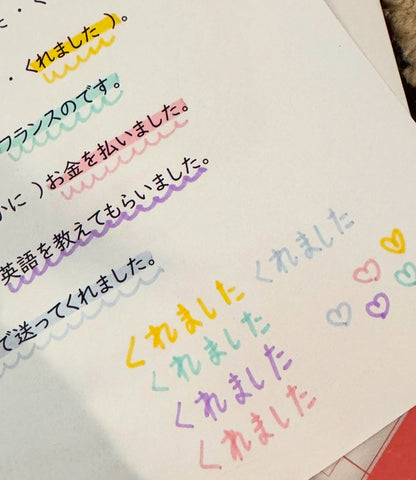 ・くれました )。
フランスのです。
かに ) お金を払いました。
英語を教えてもらいました。
で送ってくれました。
くれました
くれました
くれました
くれました
くれました